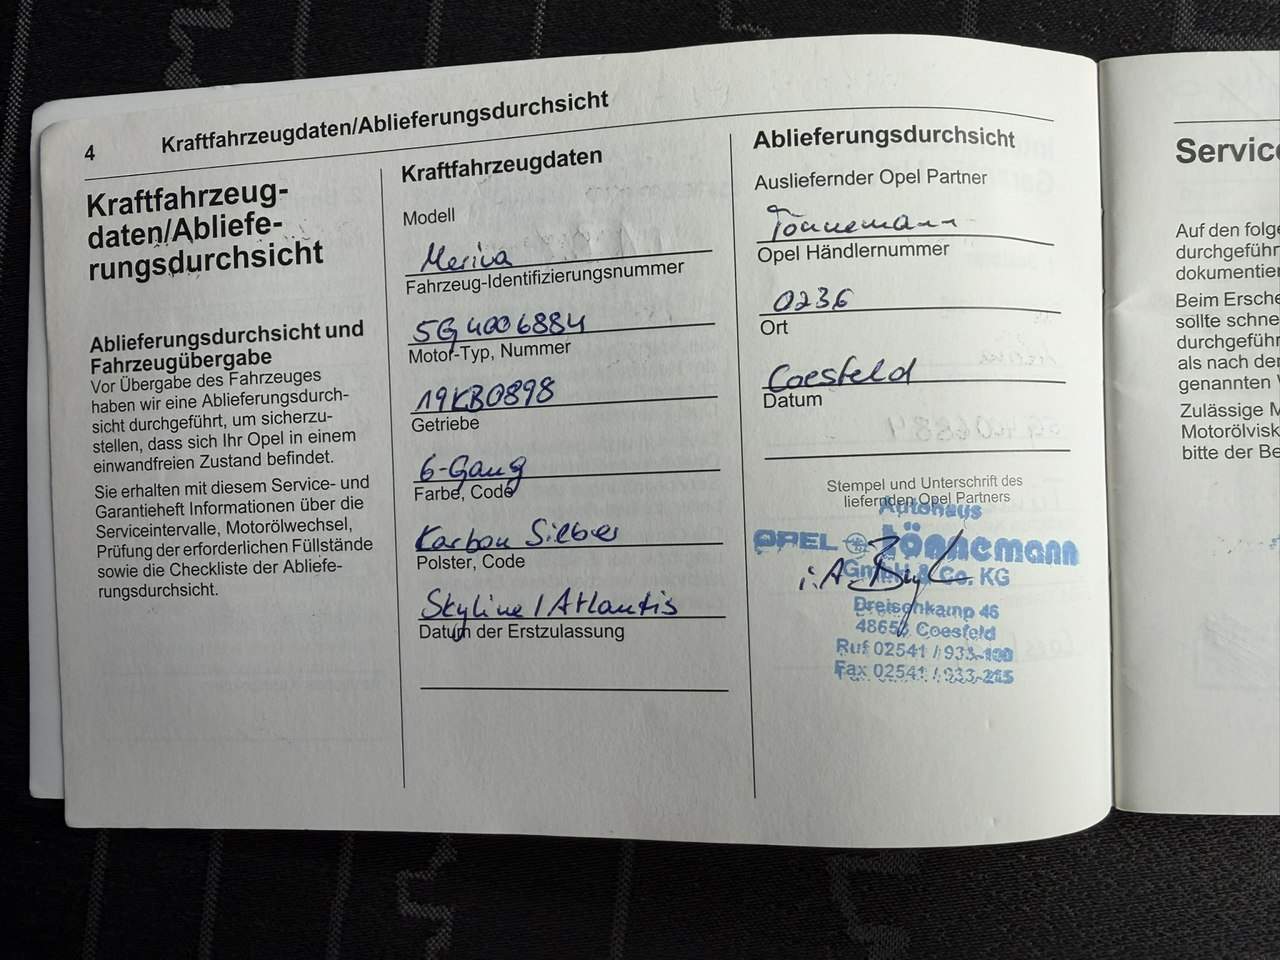 4
Kraftfahrzeugdaten/Ablieferungsdurchsicht
Kraftfahrzeug-
daten/Abliefe-
rungsdurchsicht
Ablieferungsdurchsicht und
Fahrzeugübergabe
Vor Übergabe des Fahrzeuges
haben wir eine Ablieferungsdurch-
sicht durchgeführt, um sicherzu-
stellen, dass sich Ihr Opel in einem
einwandfreien Zustand befindet.
Sie erhalten mit diesem Service- und
Garantieheft Informationen über die
Serviceintervalle, Motorölwechsel,
Prüfung der erforderlichen Füllstände
sowie die Checkliste der Abliefe-
rungsdurchsicht.
Kraftfahrzeugdaten
Modell
Meriva
Fahrzeug-Identifizierungsnummer
5G4006884
Motor-Typ, Nummer
19KB0898
Getriebe
6-Gang
Farbe, Code
Karbon Silber
Polster, Code
Skyline/Atlantis
Datum der Erstzulassung
Ablieferungsdurchsicht
Ausliefernder Opel Partner
Tönnemann
Opel Händlernummer
0236
Ort
Coesfeld
Datum
Stempel und Unterschrift des
liefernden Opel Partners
Autohaus
OPEL Tönnemann
GmbH & Co. KG
i.A.
Dreischkamp 46
48653 Coesfeld
Ruf 02541 / 933-100
Fax 02541 / 933-215
Service
Auf den folge
durchgeführ
dokumentier
Beim Ersche
sollte schne
durchgeführ
als nach der
genannten
Zulässige M
Motorölvisk
bitte der Be